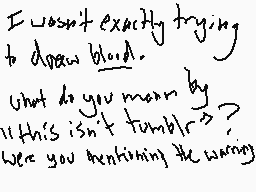 I wasn't exactly trying
to draw blood.
what do you mean by
"this isn't tumblr"?
were you mentioning the warning